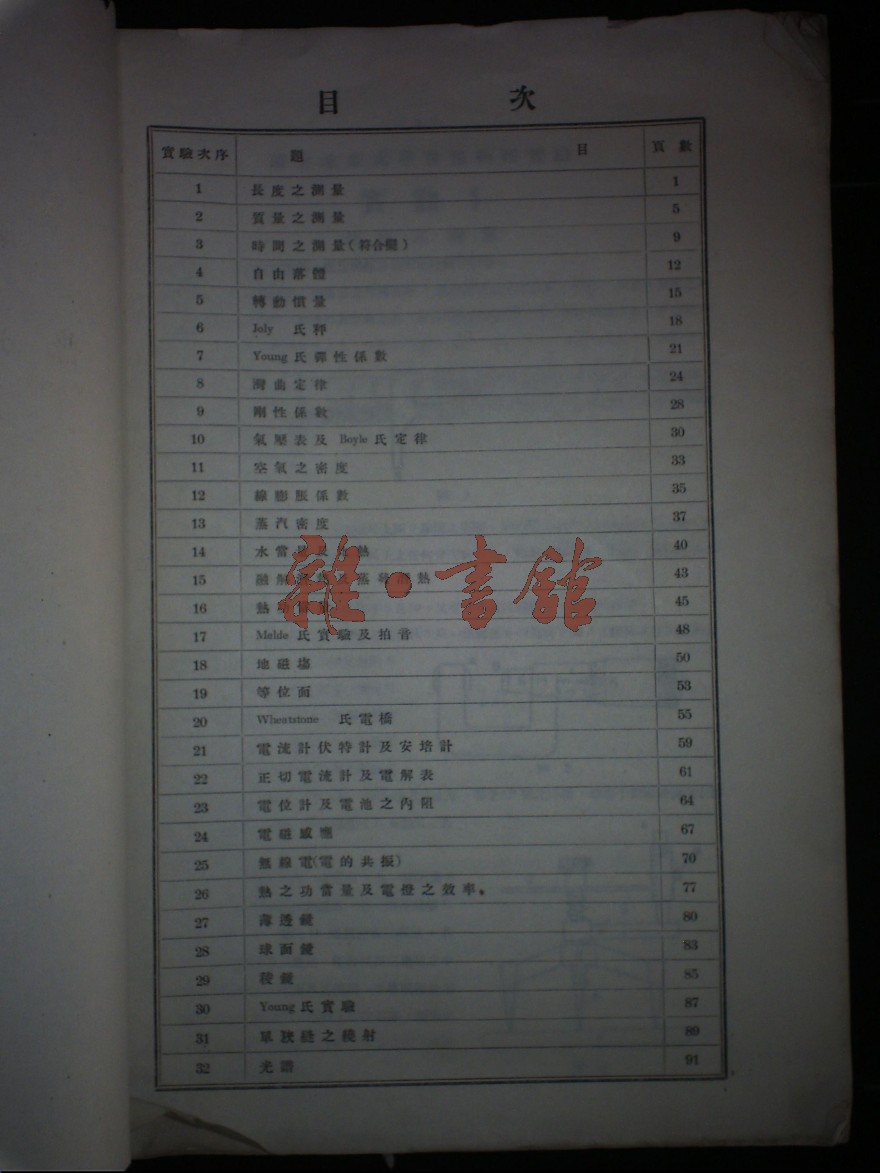 目 次
實驗次序 題 目 頁數
1 長度之測量 1
2 質量之測量 5
3 時間之測量(符合體) 9
4 自由落體 12
5 轉動慣量 15
6 Joly 氏秤 18
7 Young氏彈性係數 21
8 定律 24
9 剛性係數 28
10 氣壓表及 Boyle氏定律 30
11 空氣之密度 33
12 線膨脹係數 35
13 蒸汽密度 37
14 水當 熱 40
15 融解 蒸 熱 43
16 熱 45
17 Melde氏實驗及拍音 48
18 地磁塲 50
19 等位面 53
20 Wheatstone 氏電橋 55
21 電流計伏特計及安培計 59
22 正切電流計及電解表 61
23 電位計及電池之內阻 64
24 電磁感應 67
25 無線電(電的共振) 70
26 熱之功當量及電燈之效率。 77
27 薄透鏡 80
28 球面鏡 83
29 稜鏡 85
30 Young氏實驗 87
31 單狹縫之繞射 89
32 光譜 91
雜·書館